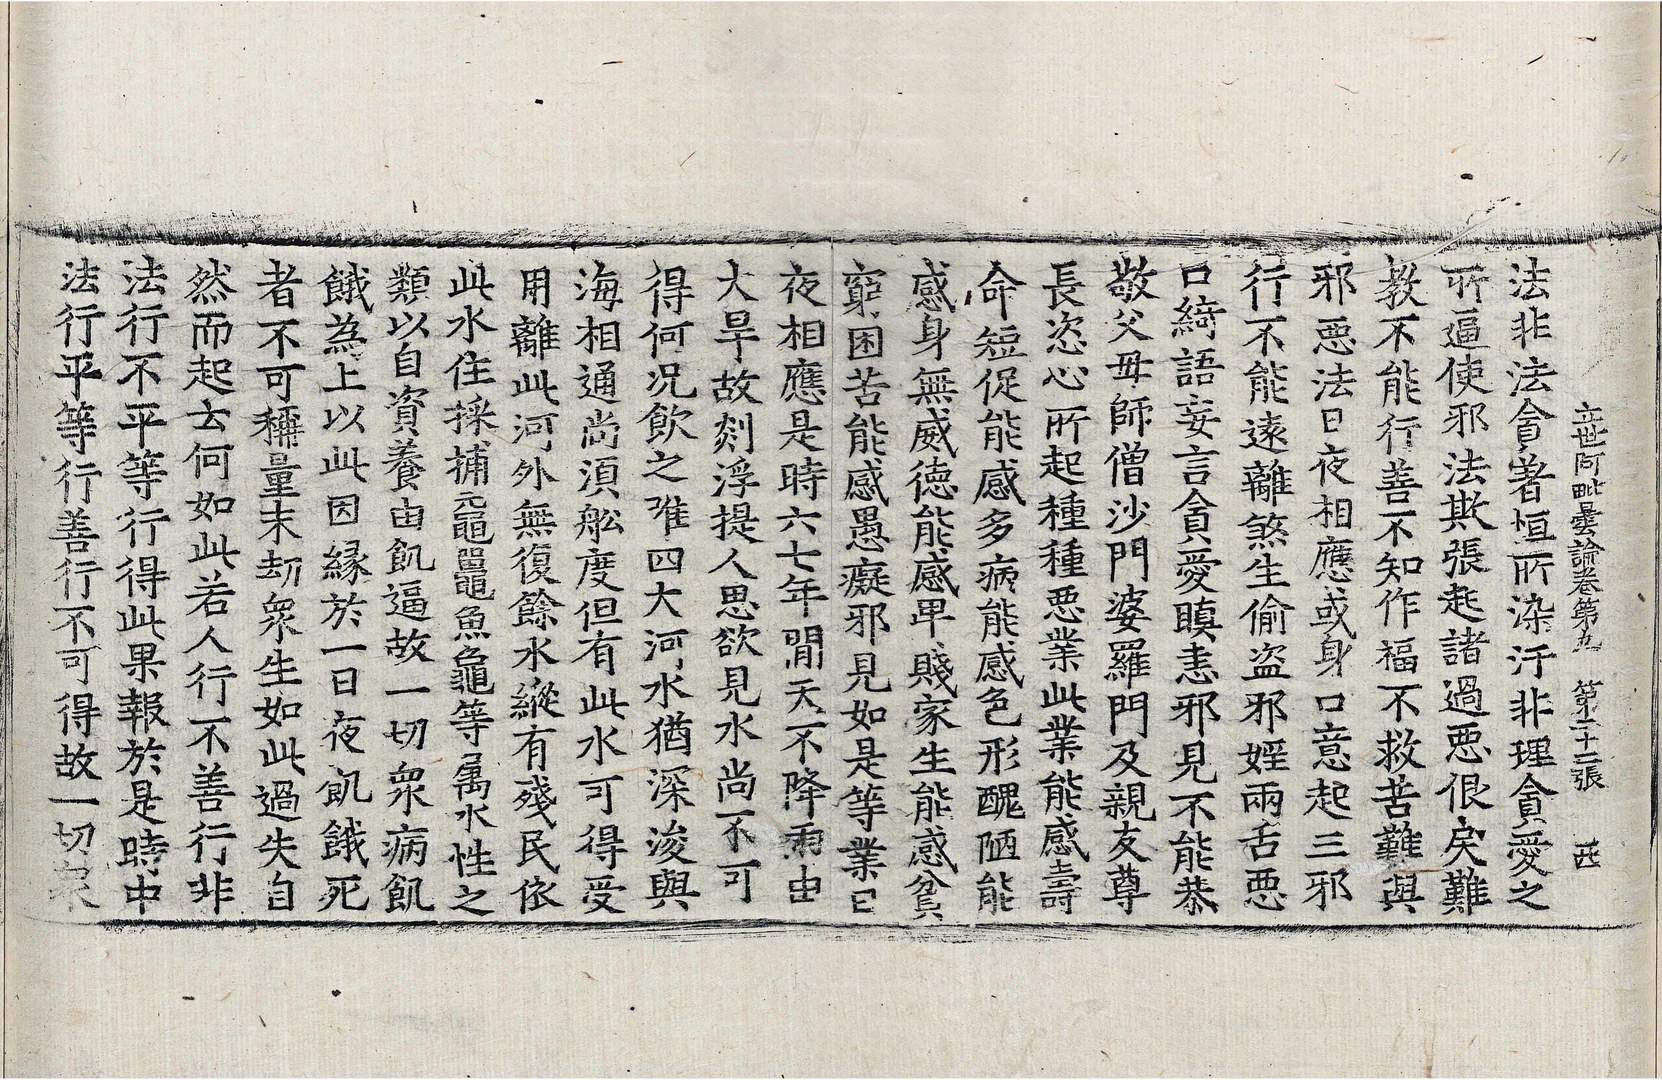 立世阿毗曇論卷第九 第二十二張 西
法非法貪著恒所染汙非理貪愛之
所逼使邪法欺張起諸過惡佷戾難
教不能行善不知作福不救苦難與
邪惡法日夜相應或身口意起三邪
行不能遠離煞生偷盜邪婬兩舌惡
口綺語妄言貪愛瞋恚邪見不能恭
敬父母師僧沙門婆羅門及親友尊
長恣心所起種種惡業此業能感壽
命短促能感多病能感色形醜陋能
感身無威德能感卑賤家生能感貧
窮困苦能感愚癡邪見如是等業日
夜相應是時六七年閒天不降雨由
大旱故剡浮提人思欲見水尚不可
得何況飲之唯四大河水猶深浚與
海相通尚須舩度但有此水可得受
用離此河外無復餘水縱有殘民依
此水住採捕黿鼉魚龜等屬水性之
類以自資養由飢逼故一切衆病飢
餓為上以此因緣於一日夜飢餓死
者不可稱量末劫衆生如此過失自
然而起云何如此若人行不善行非
法行不平等行得此果報於是時中
法行平等行善行不可得故一切衆